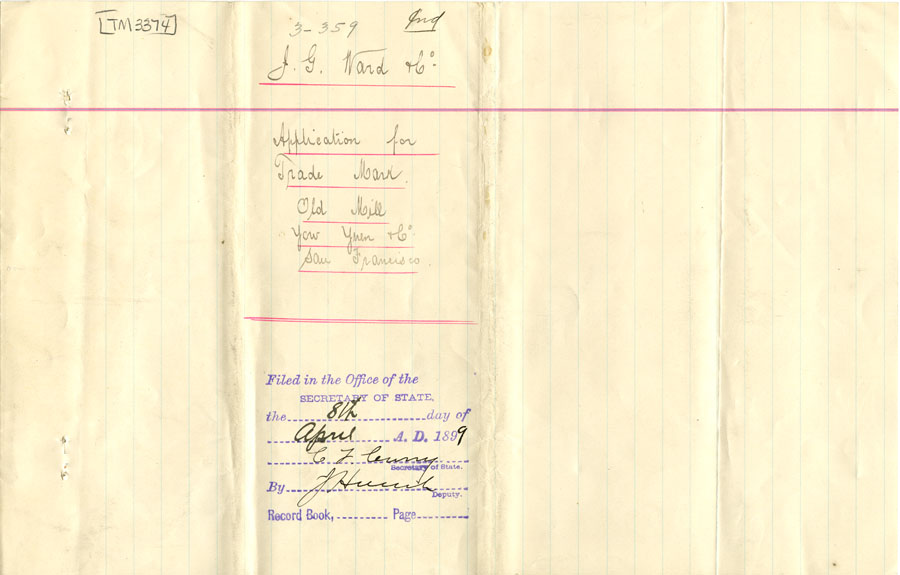 TM3374
3-359
Ind
J. G. Ward & Co.
Application for
Trade Mark.
Old Mill
Yow Yuen & Co.
San Francisco.
Filed in the Office of the
SECRETARY OF STATE,
the 8th day of
April A. D. 1899
C F Curry
Secretary of State.
By
Deputy.
Record Book, Page